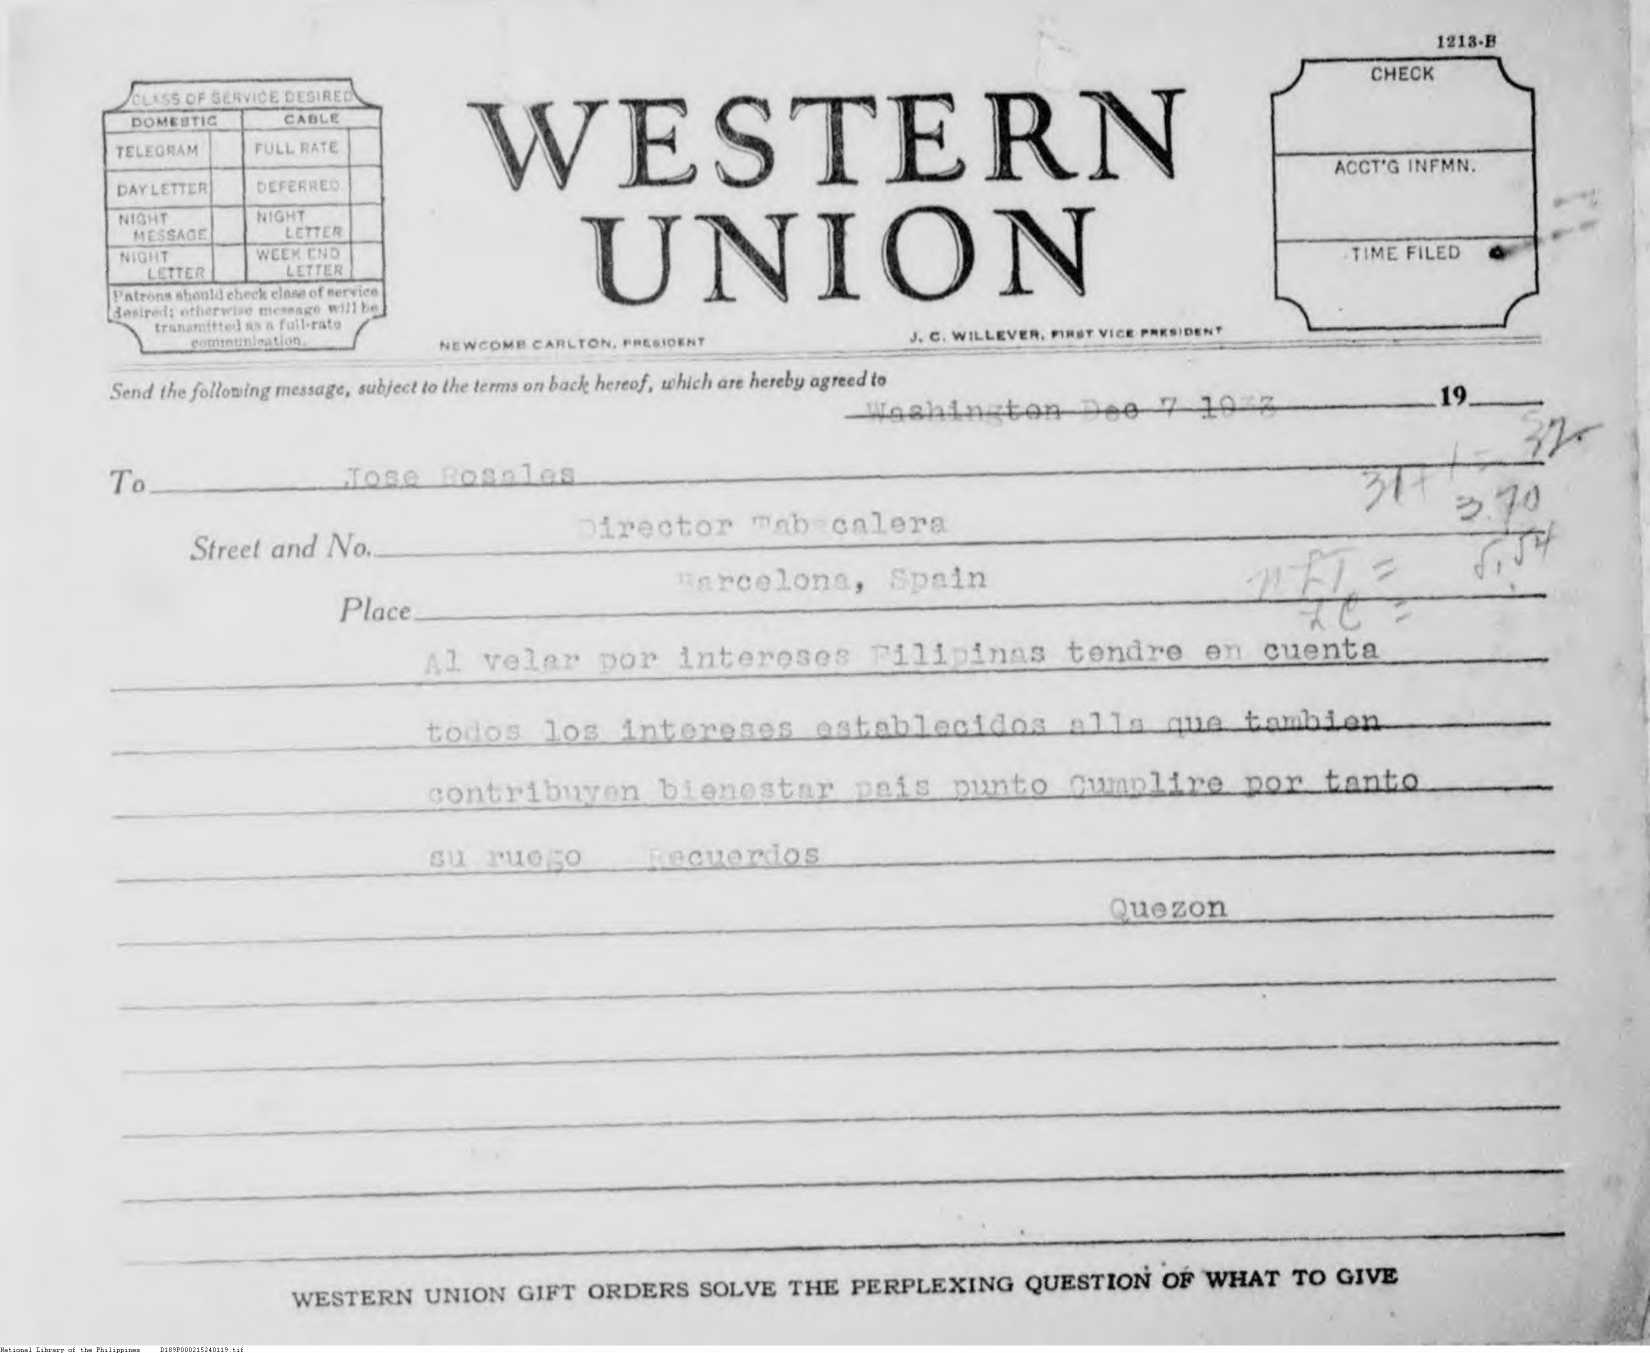 1213-B
CLASS OF SERVICE DESIRED
DOMESTIC CABLE
TELEGRAM FULL RATE
DAY LETTER DEFERRED
NIGHT MESSAGE NIGHT LETTER
NIGHT LETTER WEEK END LETTER
Patrons should check class of service
desired; otherwise message will be
transmitted as a full-rate
communication.
WESTERN
UNION
NEWCOMB CARLTON, PRESIDENT J. C. WILLEVER, FIRST VICE PRESIDENT
CHECK
ACCT'G INFMN.
TIME FILED
Send the following message, subject to the terms on back hereof, which are hereby agreed to
Washington Dec 7 1933 19
To Jose Rosales
Street and No. Director Tabacalera
Place Barcelona, Spain
31+1= 32
3.70
NLT = 5.54
LC =
Al velar por intereses Filipinas tendre en cuenta
todos los intereses establecidos alla que tambien
contribuyen bienestar pais punto Cumplire por tanto
su ruego Recuerdos
Quezon
WESTERN UNION GIFT ORDERS SOLVE THE PERPLEXING QUESTION OF WHAT TO GIVE
National Library of the Philippines D189P000215240119.tif